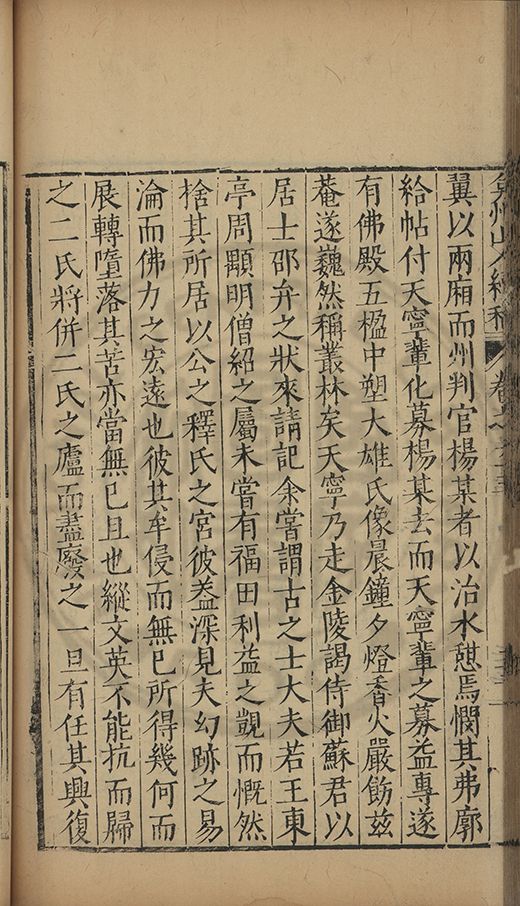 弇州山人續稿 卷之六十
翼以兩廂而州判官楊某者以治水憇焉憫其弗廓
給帖付天寧輩化募楊某去而天寧輩之募益專遂
有佛殿五楹中塑大雄氏像晨鐘夕燈香火嚴飭茲
菴遂巍然稱叢林矣天寧乃走金陵謁侍御蘇君以
居士邵弁之狀來請記余嘗謂古之士大夫若王東
亭周顒明僧紹之屬未嘗有福田利益之覬而慨然
捨其所居以公之釋氏之宮彼葢深見夫幻跡之易
淪而佛力之宏遠也彼其牟侵而無已所得幾何而
展轉墮落其苦亦當無已且也縱文英不能抗而歸
之二氏將併二氏之廬而盡廢之一旦有任其興復